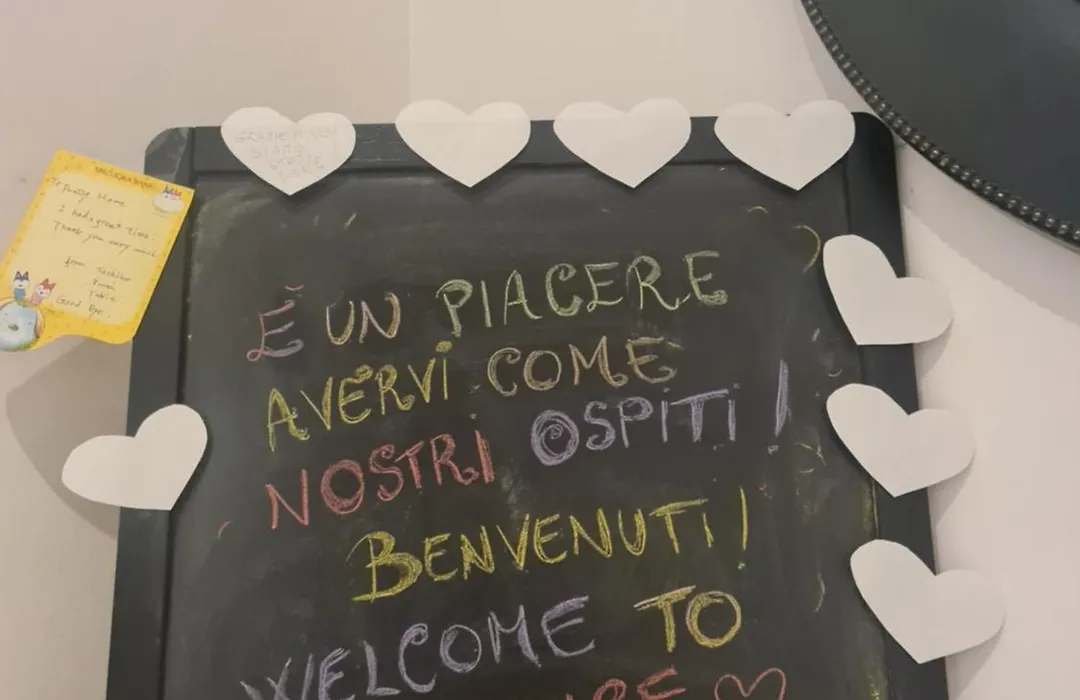 GRAZIE A VOI
SIAMO
STATE
BENE
To Pretty Home
I had a great time.
Thank you very much
from Sachiko
Good Bye.
È UN PIACERE
AVERVI COME
NOSTRI OSPITI!
BENVENUTI!
WELCOME TO